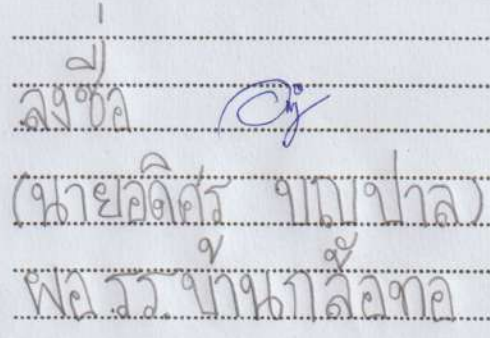 ลงชื่อ
(นายอดิศร บุญปาล)
ผอ.รร.บ้านกล้อทอ